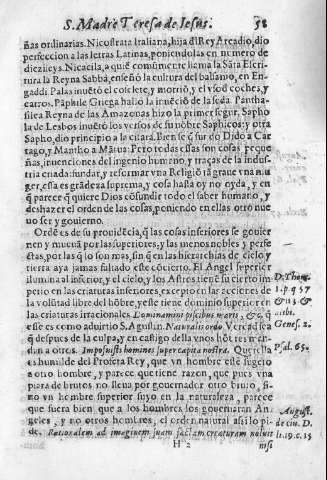 S. Madre Teresa de Iesus. 58
ñas ordinarias. Nicostrata Italiana, hija dl Rey Arcadio, dio
perfeccion a las letras Latinas, poniendolas en numero de
diez i seys. Nicaula, a quiē comūmente llama la Sāta Escri-
tura la Reyna Sabba, enseñó la cultura del balsamo, en En-
gaddi. Palas inuētó el coselete, y morriō, y el vso d̄ coches, y
carros. Pāphile Griega halló la inuēciō de la seda. Pantha-
silea Reyna de las Amazonas hizo la primer segur. Sapho
la de Lesbos inuētó los versos de su nōbre Saphicos: y otra
Sapho, dio principio a la citara. Bien se q̄ fundò Dido a Car
tago, y Mantho a Mātua: Pero todas essas son cosas peque
ñas, inuenciones del ingenio humano, y traças de la indus-
tria criada: fundar, y reformar vna Religiō tā graue vna mu
ger, essa es grādeza suprema, y cosa hasta oy no oyda, y en
q̄ parece q̄ quiere Dios cōfundir todo el saber humano, y
deshazer el orden de las cosas, poniendo en ellas otro nue
uo ser y gouierno.
Ordē es de su prouidēcia, q̄ las cosas inferiores se gouier
nen y mueuā por las superiores; y las menos nobles y perfe
ctas, por las q̄ lo son mas, sin q̄ en las hierarchias de cielo y
tierra aya jamas faltado este cōcierto. El Angel superior
ilumina al inferior, y el cielo, y los Astros tienē su cierto im
perio en las criaturas inferiores, excepto en las acciones de
la volūtad libre del hōbre, y este tiene dominio superior en
las criaturas irracionales. Dominamini piscibus maris, &c. q̄
esse es como aduirtio S. Agustin. Naturalis ordo. Verdad sea
q̄ despues de la culpa, y en castigo della vnos hōbres man-
dan a otros. Imposuisti homines super capita nostra. Querella
es humilde del Profeta Rey, que vn hombre esté sugeto
a otro hombre, y parece que tiene razon, que pues vna
piara de brutos no lleua por gouernador otro bruto, si-
no vn hombre superior suyo en la naturaleza, parece
que fuera bien que a los hombres los gouernaran An-
geles, y no otros hombres, el orden natural assi lo pi-
de. Rationalem ad imaginem suam factam creaturam noluit
H 2 nisi
D. Thom.
1. p. q 57
& 115 &
alibi.
Genes. 2.
Psal. 65.
August.
de ciu. D.
li. 19. c. 15